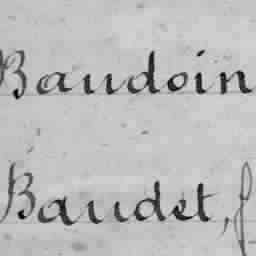 Baudoin
Baudet, J